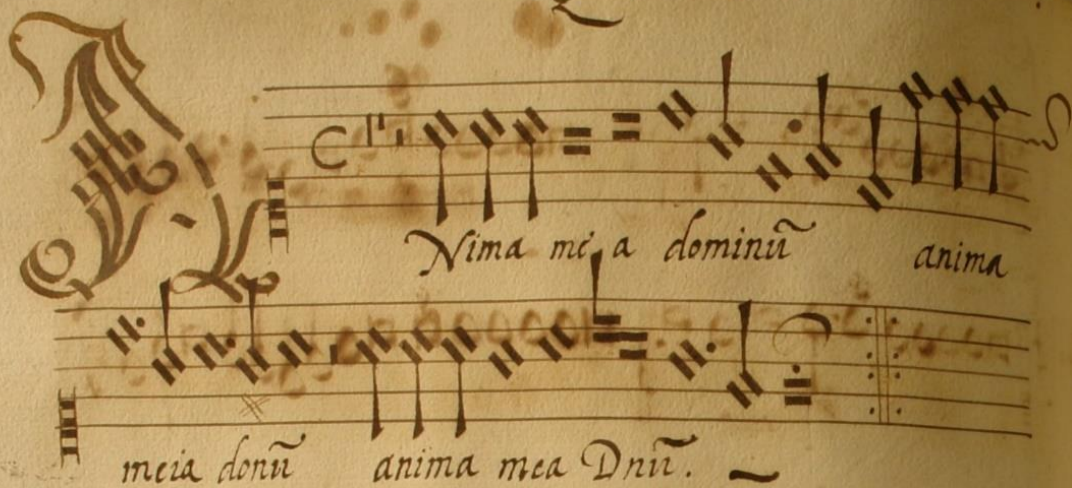 A Nima me a dominũ anima
meia donũ anima mea Dnũ.